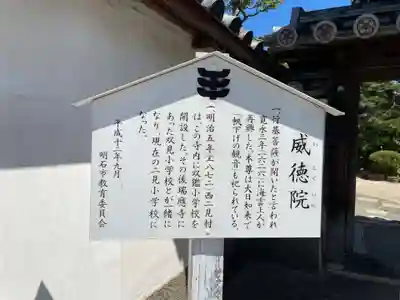 威徳院
いとくいん
一、行基菩薩が開いたと言われ
寛永三年(一六二六)に海雲上人が
再興した。本尊は大日如来で
帆下げの観音も祀られている。
一、明治五年(一八七二)西二見村
は、この寺内に双鑑小学校を
開設した。その後瑞應寺に
あった双見小学校と一緒に
なり、現在の二見小学校に
なった。
平成十二年九月
明石市教育委員会